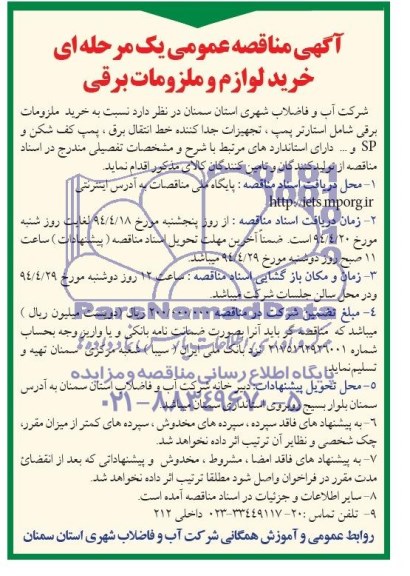 آگهی مناقصه عمومی یک مرحله ای
خرید لوازم و ملزومات برقی
شرکت آب و فاضلاب شهری استان سمنان در نظر دارد نسبت به خرید ملزومات
برقی شامل استارتر پمپ ، تجهیزات جدا کننده خط انتقال برق ، پمپ کف شکن و
SP و ... دارای استاندارد های مرتبط با شرح و مشخصات تفصیلی مندرج در اسناد
مناقصه از تولیدکنندگان و تامین کنندگان کالای مذکور اقدام نماید.
۱- محل دریافت اسناد مناقصه : پایگاه ملی مناقصات به آدرس اینترنتی
http://iets.mporg.ir
۲- زمان دریافت اسناد مناقصه : از روز پنجشنبه مورخ ۹۴/۴/۱۸ لغایت روز شنبه
مورخ ۹۴/۴/۲۰ است. ضمناً آخرین مهلت تحویل اسناد مناقصه ( پیشنهادات ) ساعت
۱۱ صبح روز دوشنبه مورخ ۹۴/۴/۲۹ میباشد.
۳- زمان و مکان باز گشایی اسناد مناقصه : ساعت ۱۲ روز دوشنبه مورخ ۹۴/۴/۲۹
ودر محل سالن جلسات شرکت میباشد.
۴- مبلغ تضمین شرکت در مناقصه ۲۰۰/۰۰۰/۰۰۰ ریال (دویست میلیون ریال )
میباشد که مناقصه گر باید آنرا بصورت ضمانت نامه بانکی و یا واریز وجه بحساب
شماره نزد بانک ملی ایران ( سیبا ) شعبه مرکزی سمنان تهیه و
تسلیم نماید.
پایگاه اطلاع رسانی مناقصه و مزایده
۵- محل تحویل پیشنهادات: دبیر خانه شرکت آب و فاضلاب استان سمنان به آدرس
سمنان بلوار بسیج روبروی استانداری سمنان میباشد.
۰۲۱-۸۸۳۴۹۶۷۰-۵
۶- به پیشنهاد های فاقد سپرده ، سپرده های مخدوش ، سپرده های کمتر از میزان مقرر،
چک شخصی و نظایر آن ترتیب اثر داده نخواهد شد.
۷- به پیشنهاد های فاقد امضا ، مشروط ، مخدوش و پیشنهاداتی که بعد از انقضائ
مدت مقرر در فراخوان واصل شود مطلقا ترتیب اثر داده نخواهد شد.
۸- سایر اطلاعات و جزئیات در اسناد مناقصه آمده است.
۹- تلفن تماس :۲۰-۳۳۴۴۹۱۱۷-۰۲۳ داخلی ۲۱۲
روابط عمومی و آموزش همگانی شرکت آب و فاضلاب شهری استان سمنان